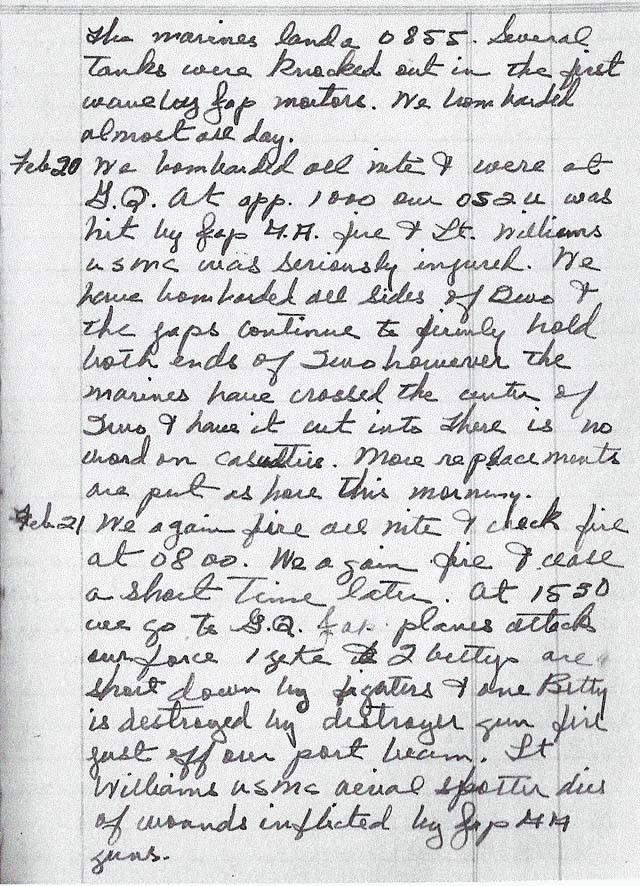 The marines land a 0855. Several
Tanks were knocked out in the first
wave by Jap mortors. We bombarded
almost all day.
Feb 20 We bombarded all nite & were at
G.Q. At app. 1000 our OS2U was
hit by Jap A.A. fire & Lt. Williams
USMC was seriously injured. We
have bombarded all sides of Iwo &
the Japs continue to firmly hold
both ends of Iwo however the
marines have crossed the center of
Iwo & have it cut into There is no
word on casualties. More replacements
are put as hore this morning.
Feb. 21 We again fire all nite & check fire
at 0800. We again fire & cease
a short Time later. At 1530
we go to G.Q. Jap planes attack
our force 1 zeke 2 bettys are
short down by fighters & one Betty
is destroyed by destroyer gun fire
just off our port beam. Lt
Williams USMC aerial spotter dies
of wounds inflicted by Jap AA
guns.